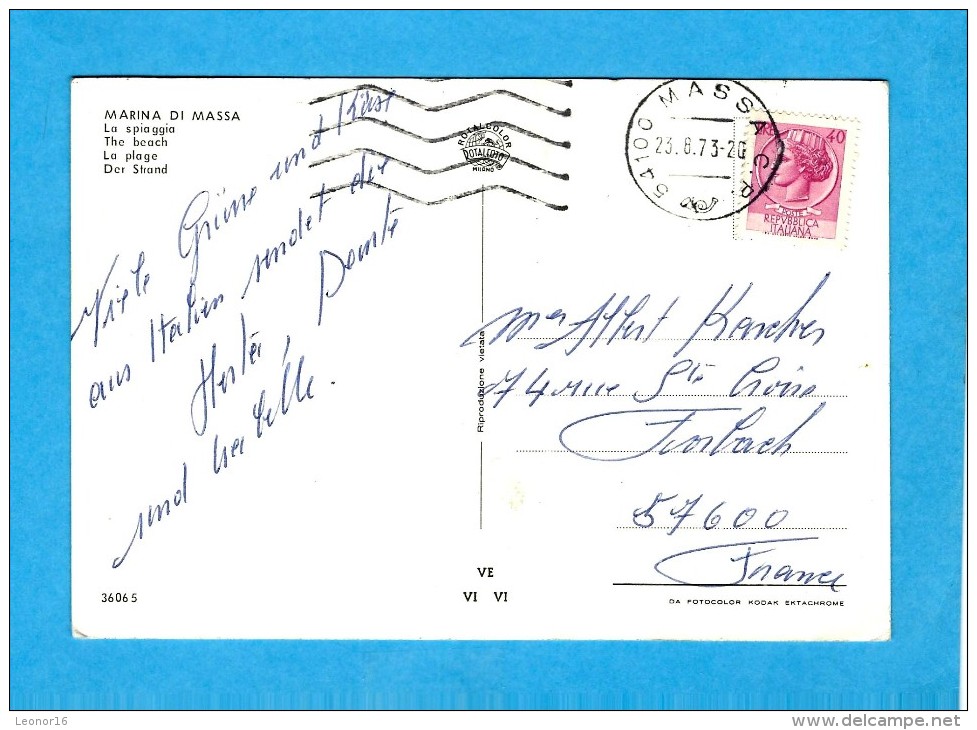 MARINA DI MASSA
La spiaggia
The beach
La plage
Der Strand
ROTALCOLOR
ROTALFOTO
MILANO
54100 MASSA C.P.
23.8.73-20
LIRE 40
POSTE
REPVBBLICA
ITALIANA
Viele Grüsse und Küsse
aus Italien sendet die
Herta,
und Isabelle.
Riproduzione vietata
Mer Albert Karcher
74 rue Ste Croix
Forbach
57600
France
VE
VI VI
36065
DA FOTOCOLOR KODAK EKTACHROME
Leonor16
delcampe.net